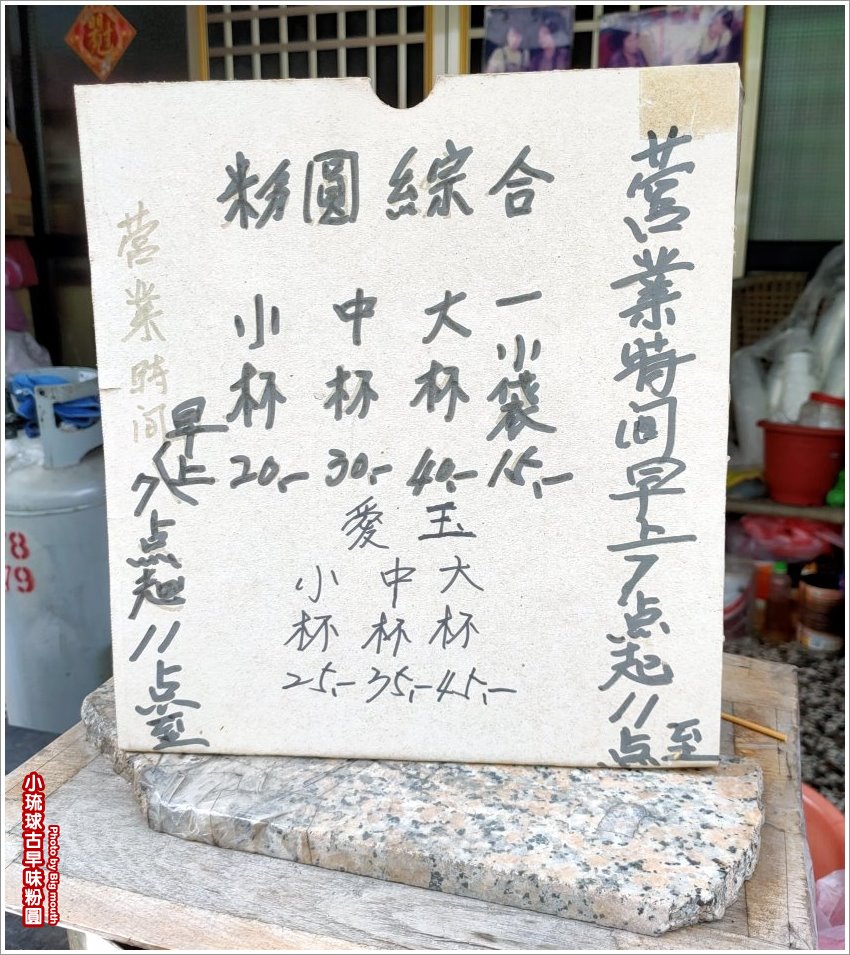 粉圓綜合
小杯 20.-
中杯 30.-
大杯 40.-
一小袋 15.-
愛玉
小杯 25.-
中杯 35.-
大杯 45.-
营業時间早上7点起11点至
营業時间早上7点起11点至
78
79
小琉球古早味粉圓
Photo by Big mouth